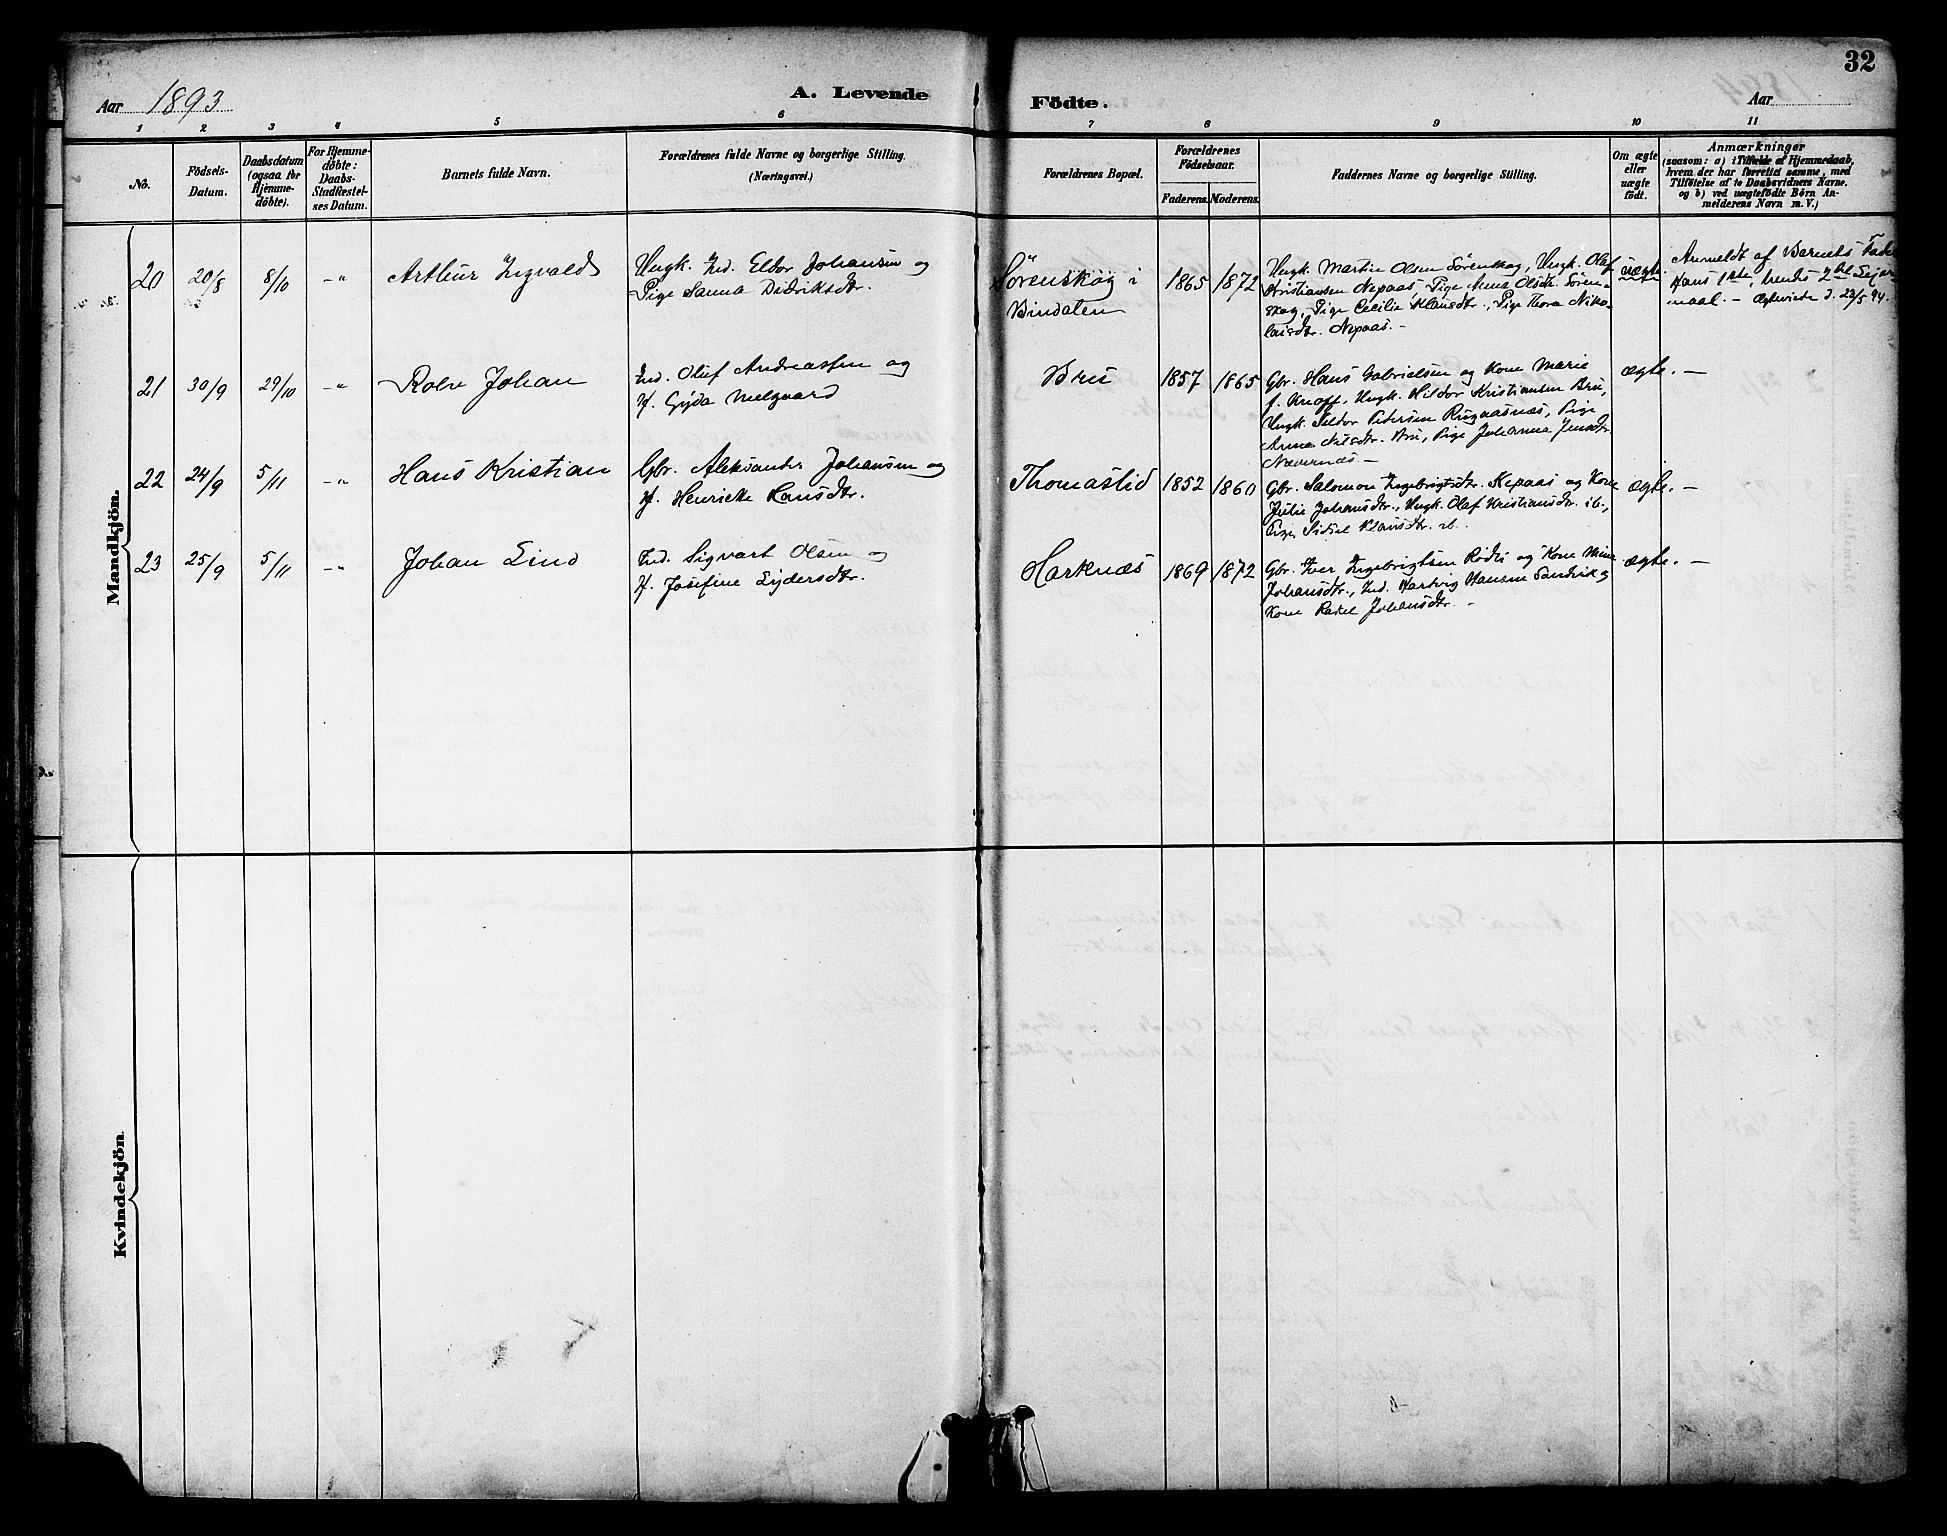 32
Aar 1893 A. Levende Födte. Aar
1 2 3 4 5 6 7 8 9 10 11
No.
Födsels-Datum.
Daabsdatum (ogsaa for Hjemme-döbte).
For Hjemme-döbte: Daabs-Stadfæstel-ses Datum.
Barnets fulde Navn.
Forældrenes fulde Navne og borgerlige Stilling.
(Næringsvei.)
Forældrenes Bopæl.
Forældrenes Födselsaar.
Faderens. Moderens.
Faddernes Navne og borgerlige Stilling.
Om ægte eller uægte födt.
Anmærkninger
(saasom: a) i Tilfælde af Hjemmedaab,
hvem der har forrettet samme, med
Tilföielse af to Daabsvidners Navne,
og b) ved uægtefödte Börn An-
melderens Navn m. V.)
Mandkjön.
20 20/8 8/10 -"- Arthur Ingvald
Ungk. Ind. Eldor Johansen og
Pige Sanna Didriksdtr.
Sörenskog i
Bindalen
1865 1872
Ungk. Martin Olsen Sörenskog, Ungk. Olaf
Kristiansen Nepaas, Pige Anna Olsdtr. Sören-
skog, Pige Cecilie Klausdtr., Pige Thora Niko-
laisdtr. Nepaas. —
uægte.
Anmeldt af Barnets Fader
Hans 1ste, hendes 2det Leier-
maal. — Ægteviede d. 23/5 94.
21 30/9 29/10 -"- Rolv Johan
Ind. Oluf Andreassen og
H. Gyda Melgaard
Bru
1857 1865
Gbr. Hans Gabrielsen og Kone Marie
f. Knoff, Ungk. Hildor Kristiansen Bru,
Ungk. Peder Pedersen Rugaasnæs, Pige
Anna Nilsdtr. Bru, Pige Johanna Jensdtr.
Nævernæs —
ægte. —
22 24/9 5/11 -"- Hans Kristian
Gbr. Aleksander Johansen og
H. Henrikke Hansdtr.
Thomaslid
1852 1860
Gbr. Salomon Ingebrigtsdtr. Nepaas og Kone
Julie Johansdtr., Ungk. Olaf Kristiansdtr. ib.,
Pige Sidsel Klausdtr. ib.
ægte. —
23 25/9 5/11 -"- Johan Lind
Ind. Sigvart Olsen og
H. Josefine Eydersdtr.
Harknæs
1869 1872
Gbr. Iver Ingebrigtsen Rödli og Kone Mina
Johansdtr., Ind. Hartvig Hansen Sandvik og
Kone Rakel Johansdtr. —
ægte. —
Kvindekjön.